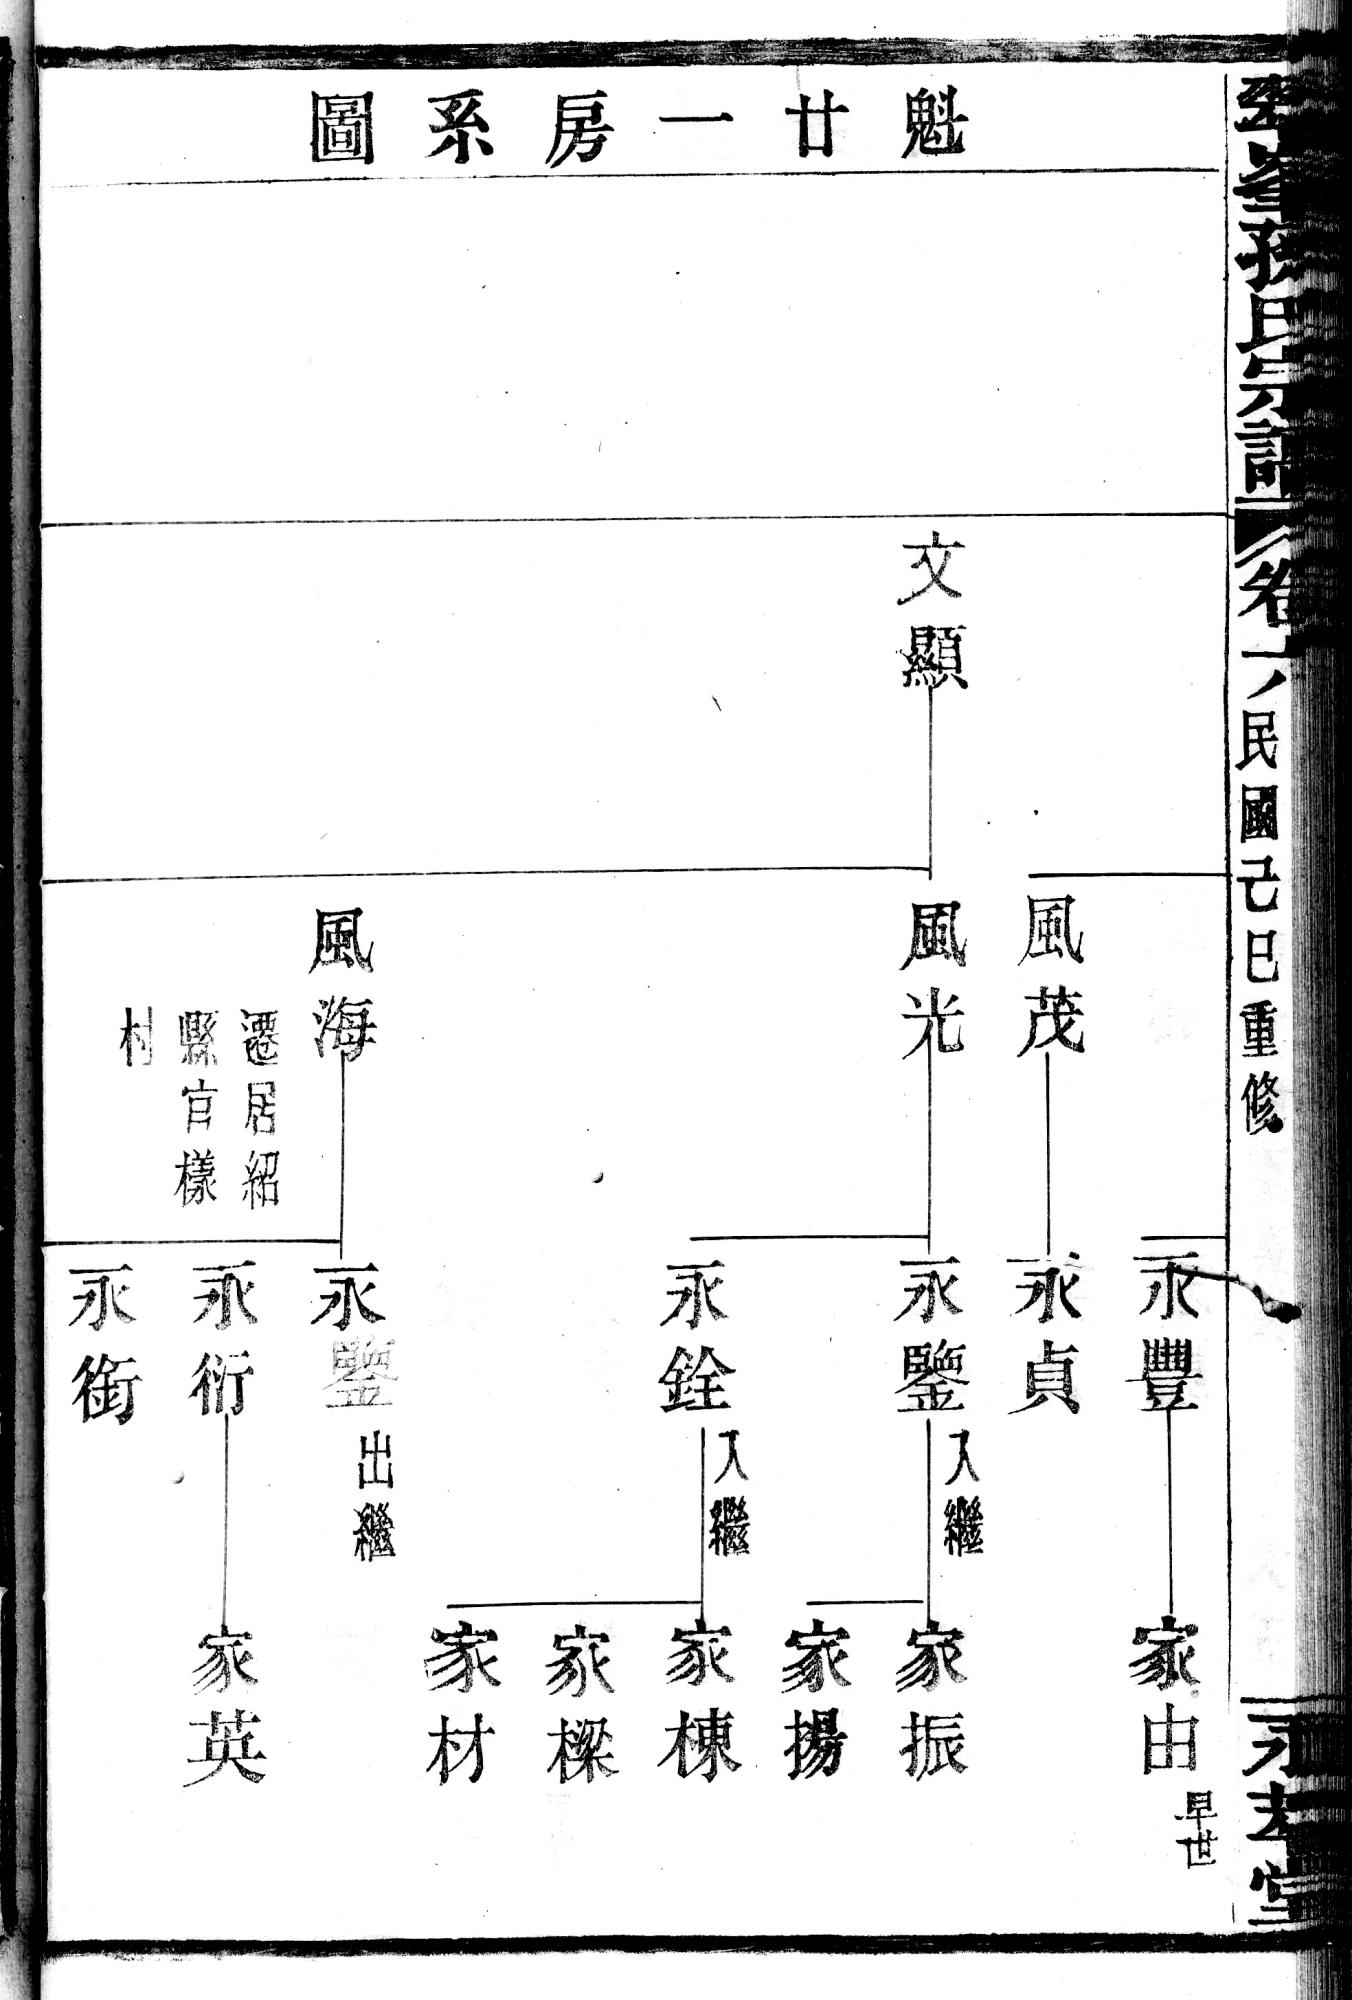 魁廿一房系圖
孫氏宗譜
卷六
民國己巳重修
堂
文顯
風茂
風光
風海
遷居紹
縣官樣
村
永豐
永貞
永鑒
入繼
永銓
入繼
永鑒
出繼
永衍
永銜
家由
早世
家振
家揚
家棟
家樑
家材
家英